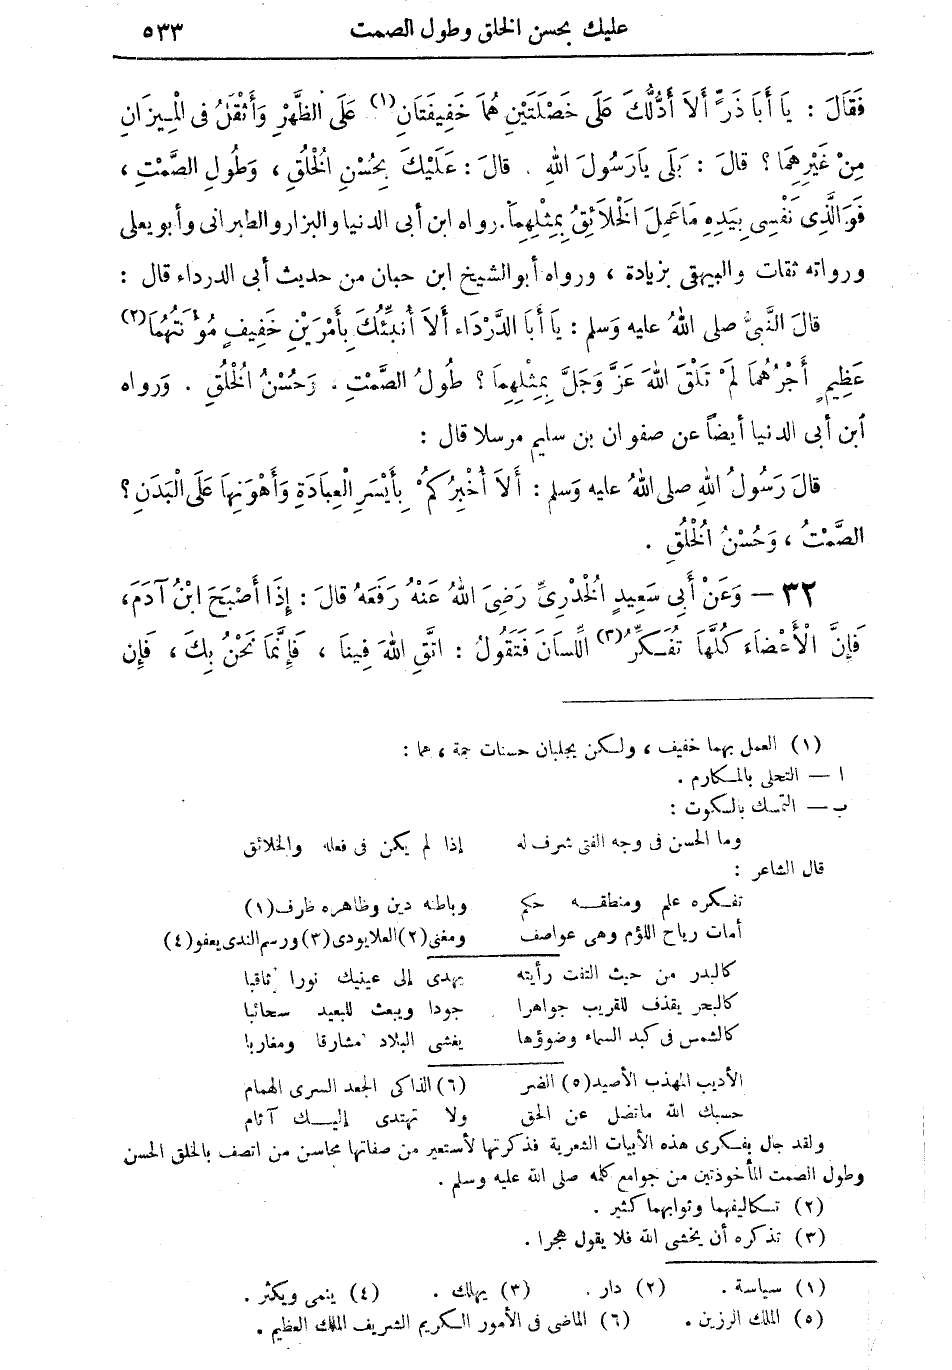 عليك بحسن الخلق وطول الصمت ٥٣٣
فَقَالَ : يَا أَبَا ذَرٍّ أَلاَ أَدُلُّكَ عَلَى خَصْلَتَيْنِ هُمَا خَفِيفَتَانِ(١) عَلَى الظَّهْرِ وَأَثْقَلُ فى الْمِيزَانِ
مِنْ غَيْرِهِمَا ؟ قالَ : بَلَى يَارَسُولَ اللهِ . قالَ : عَلَيْكَ بِحُسْنِ الْخُلُقِ ، وَطُولِ الصَّمْتِ ،
فَوَ الَّذِى نَفْسِى بِيَدِهِ مَاعَمِلَ الْخَلاَئِقُ بِمِثْلِهِمَا. رواه ابن أبى الدنيا والبزار والطبرانى وأبو يعلى
ورواته ثقات والبيهقى بزيادة ، ورواه أبو الشيخ ابن حبان من حديث أبى الدرداء قال :
قالَ النَّبىُّ صلى اللهُ عليه وَسلم : يَا أَبَا الدَّرْدَاء أَلاَ أُنَبِّئُكَ بِأَمْرَيْنِ خَفِيفٍ مُؤْنَتُهُمَا(٢)
عَظِيمٍ أَجْرُهُمَا لَمْ تَلْقَ اللهَ عَزَّ وَجَلَّ بِمِثْلِهِمَا ؟ طُولُ الصَّمْتِ ، وَحُسْنُ الْخُلُقِ . وَرواه
ابن أبى الدنيا أيضاً عن صفوان بن سليم مرسلا قال :
قالَ رَسُولُ اللهِ صلى اللهُ عليه وَسلم : أَلاَ أُخْبِرُكمُ ْ بِأَيْسَرِ الْعِبَادَةِ وَأَهْوَنِهَا عَلَى الْبَدَنِ ؟
الصَّمْتُ ، وَحُسْنُ الْخُلُقِ .
٣٢ — وَعَنْ أَبِى سَعِيدٍ الْخُدْرِىِّ رَضِىَ اللهُ عَنْهُ رَفَعَهُ قالَ : إِذَا أَصْبَحَ ابْنُ آدَمَ،
فَإِنَّ الْأَعْضَاءَ كُلَّهَا تُفَكِّرُ(٣) اللِّسَانَ فَتَقُولُ : اتَّقِ اللهَ فِينَا ، فَإِنَّمَا نَحْنُ بِكَ ، فَإِن
(١) العمل بهما خفيف ، ولكن يجلبان حسنات جمة ، هما :
ا — التحلى بالمكارم .
ب — التمسك بالسكوت :
وما الحسن فى وجه الفتى شرف له إذا لم يكن فى فعله والخلائق
قال الشاعر :
تفكره علم ومنطقه حكم وباطنه دين وظاهره ظرف(١)
أمات رياح اللؤم وهى عواصف ومغنى(٢) العلا يودى(٣) ورسم الندى يعفو(٤)
كالبدر من حيث التفت رأيته يهدى إلى عينيك نورا ثاقبا
كالبحر يقذف للقريب جواهرا جودا ويبعث للبعيد سحائبا
كالشمس فى كبد السماء وضوؤها يغشى البلاد مشارقا ومغاربا
الأديب المهذب الأصيد(٥) الضر (٦) الذاكى الجعد السرى الهمام
حسبك الله ماتضل عن الحق ولا تهتدى إليك آثام
ولقد جال بفكرى هذه الأبيات الشعرية فذكرتها لأستعير من صفاتها محاسن من اتصف بالخلق الحسن
وطول الصمت المأخوذتين من جوامع كلمه صلى الله عليه وسلم .
(٢) تكاليفهما وثوابهما كثير .
(٣) تذكره أن يخشى الله فلا يقول هجرا .
(١) سياسة . (٢) دار . (٣) يهلك . (٤) ينمى ويكثر .
(٥) الملك الرزين . (٦) الماضى فى الأمور الكريم الشريف الملك العظيم .